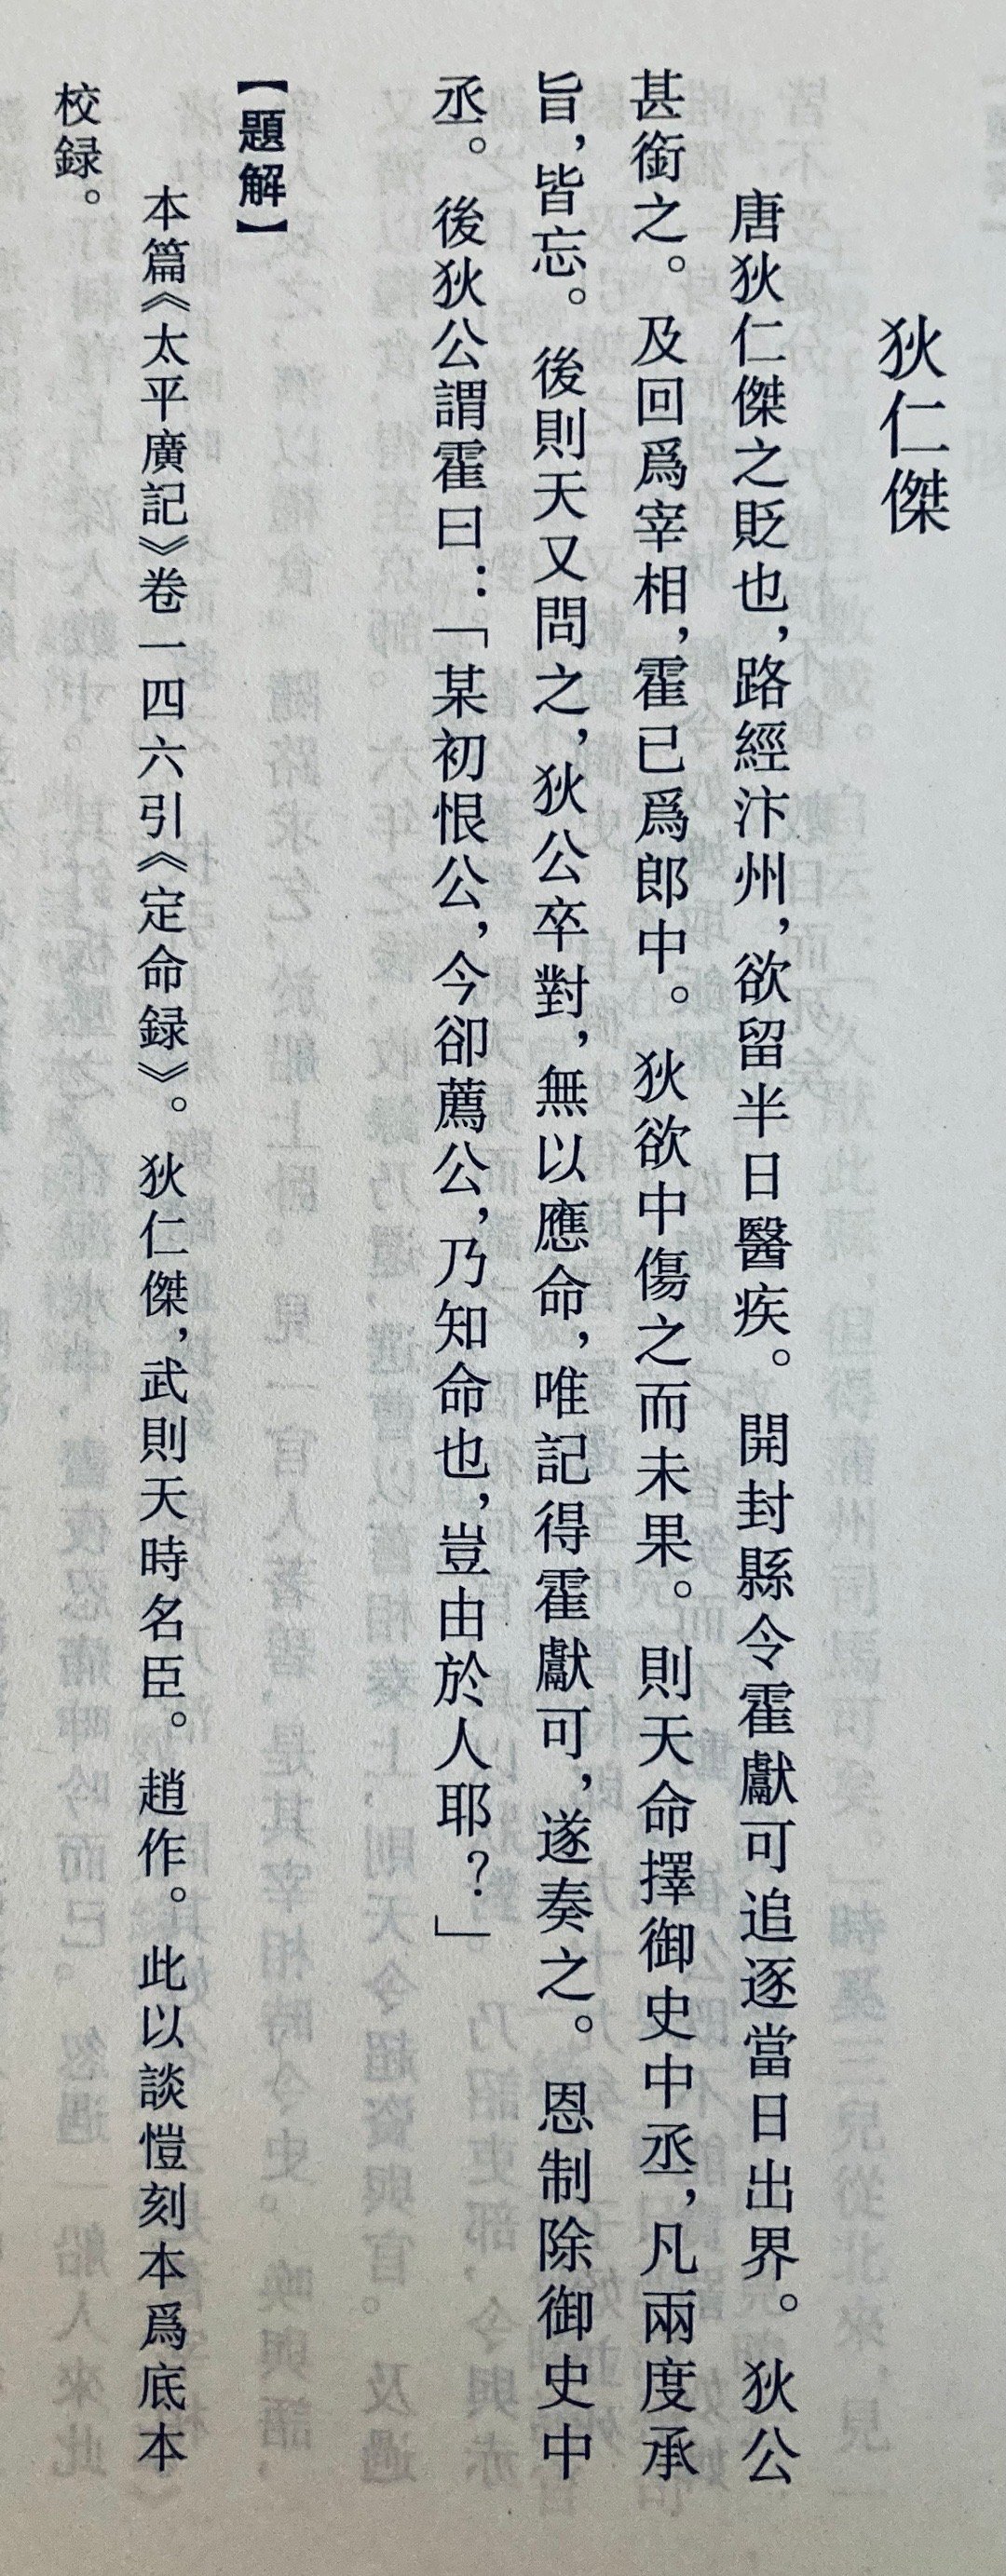 狄仁傑
唐狄仁傑之貶也，路經汴州，欲留半日醫疾。開封縣令霍獻可追逐當日出界。狄公
甚銜之。及回爲宰相，霍已爲郎中。狄欲中傷之而未果。則天命擇御史中丞，凡兩度承
旨，皆忘。後則天又問之，狄公卒對，無以應命，唯記得霍獻可，遂奏之。恩制除御史中
丞。後狄公謂霍曰：「某初恨公，今卻薦公，乃知命也，豈由於人耶？」
【題解】
本篇《太平廣記》卷一四六引《定命録》。狄仁傑，武則天時名臣。趙作。此以談愷刻本爲底本
校録。